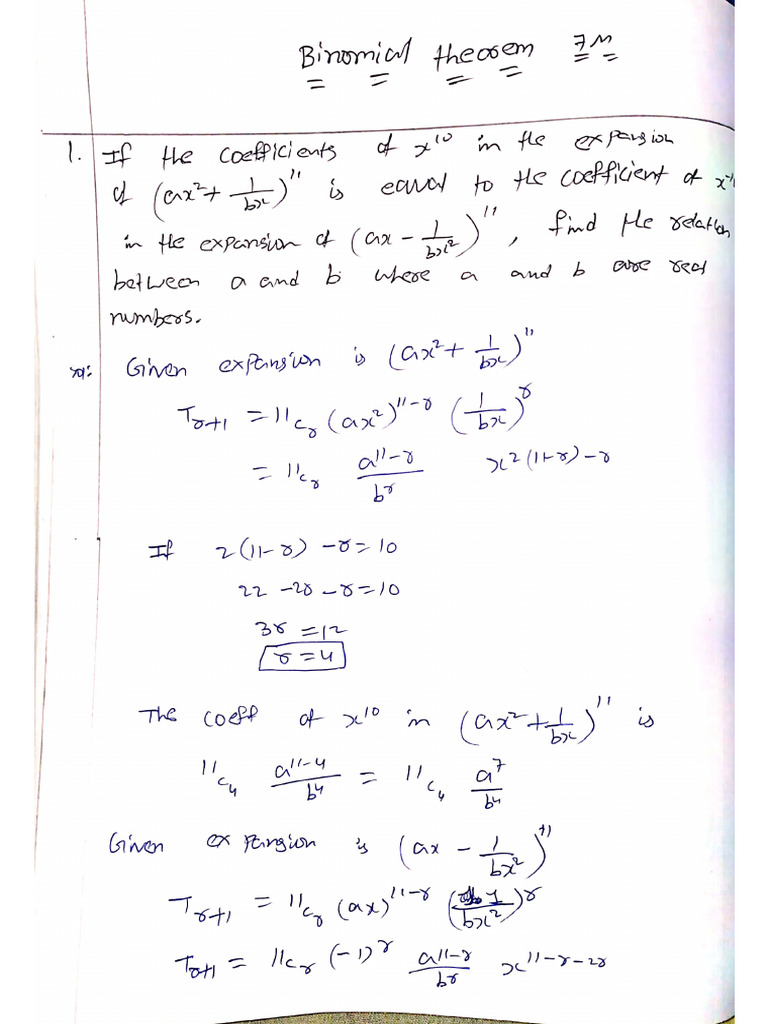 Binomial theorem 7M
1. If the coefficients of x¹⁰ in the expansion
of (ax² + 1/bx)¹¹ is equal to the coefficient of x⁻¹⁰
in the expansion of (ax - 1/bx²)¹¹, find the relation
between a and b where a and b are real
numbers.
Given expansion is (ax² + 1/bx)¹¹
Tᵣ₊₁ = 11cᵣ (ax²)¹¹⁻ʳ (1/bx)ʳ
= 11cᵣ a¹¹⁻ʳ/bʳ x²⁽¹¹⁻ʳ⁾⁻ʳ
If 2(11-r) - r = 10
22 - 2r - r = 10
3r = 12
r = 4
The coeff of x¹⁰ in (ax² + 1/bx)¹¹ is
11c₄ a¹¹⁻⁴/b⁴ = 11c₄ a⁷/b⁴
Given expansion is (ax - 1/bx²)¹¹
Tᵣ₊₁ = 11cᵣ (ax)¹¹⁻ʳ (1/bx²)ʳ
Tᵣ₊₁ = 11cᵣ (-1)ʳ a¹¹⁻ʳ/bʳ x¹¹⁻ʳ⁻²ʳ